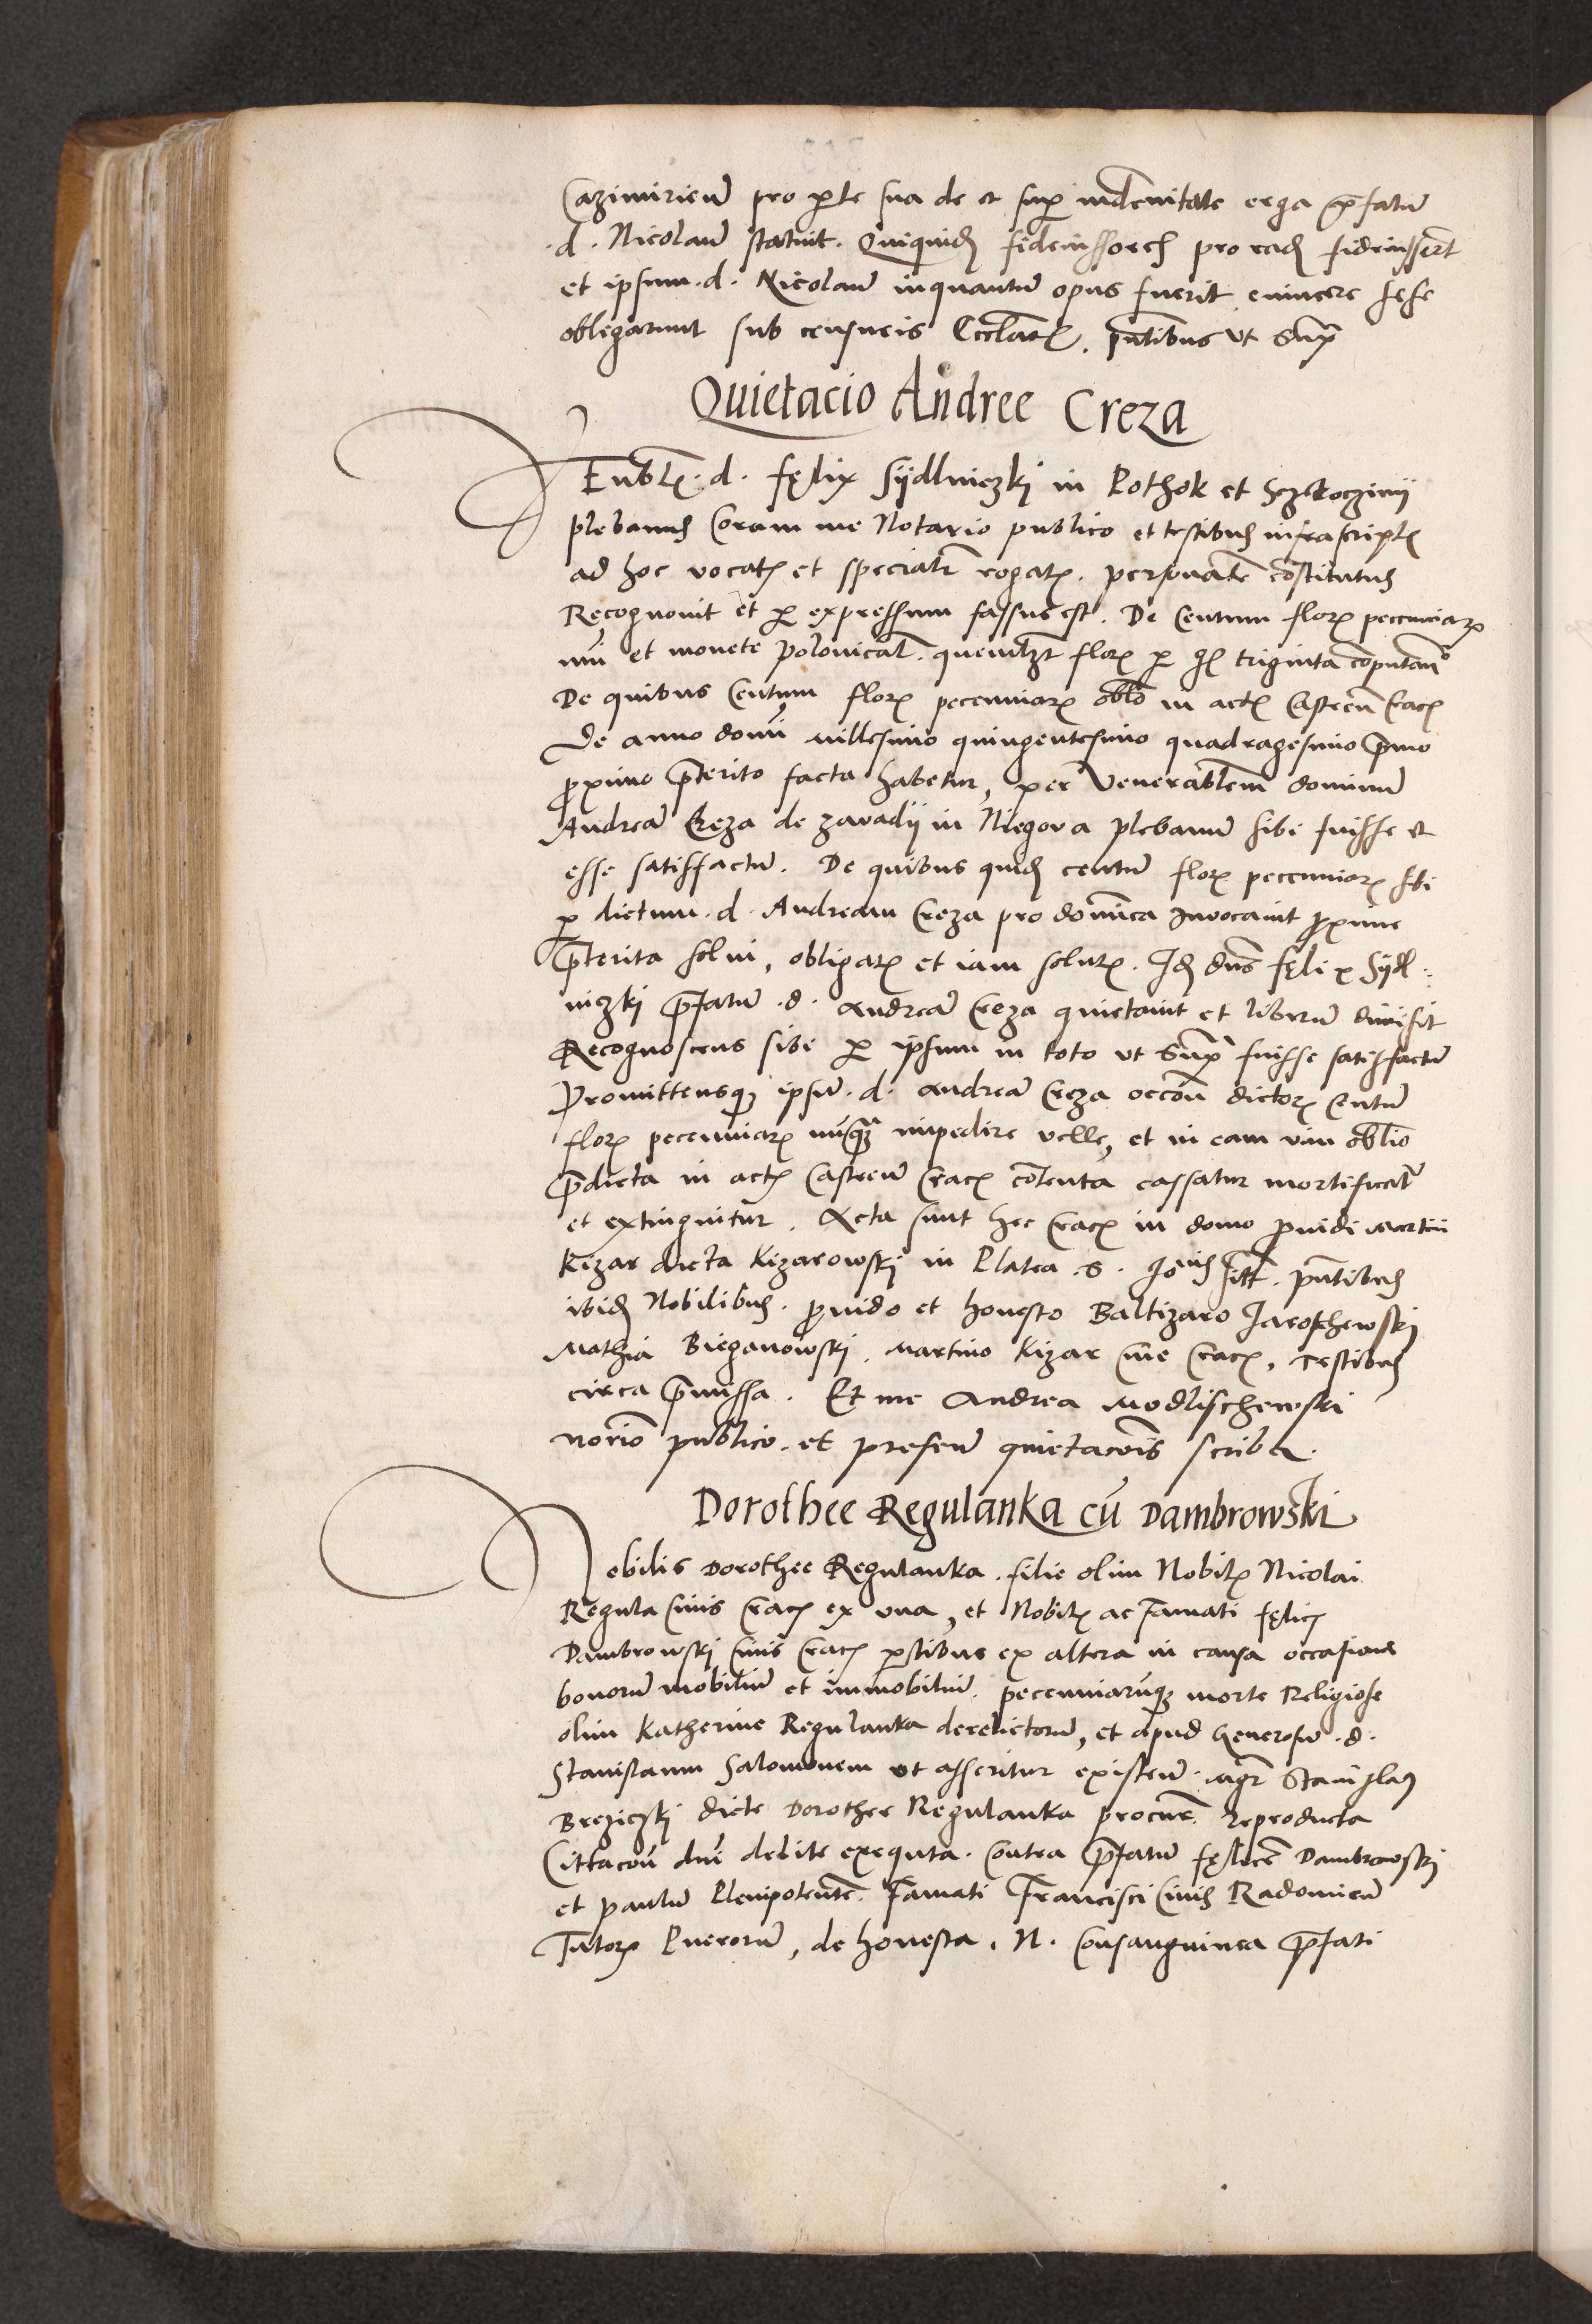 Cazimirien̄ pro ꝑte sua de et sup̱ indemnitate erga p̄fatū
.d. Nicolaū statuit. Quiquidē fideiussores pro eadē fideiusserūt
et ipsum .d. Nicolaū inquantū opus fuerit euincere sese
obligarunt sub censuris Eccl̄aticꝭ. p̄ntibus vt Sup̱
Quietacio Andree Creza
Venbl̄ꝭ .d. fęlix Sÿdlniczkj in Pothok et
plebanus Coram me Notario publico et testibus infrascriptꝭ
ad hoc vocatꝭ et specialr̄ rogatꝭ. personalr̄ cōstitutus
Recognouit et ꝑ expressum fassus est. De Centum florꝭ peccuniarꝭ
nūi et monete Polonicał. quemlꝫt florꝭ ꝑ gꝭ triginta cōputan̄°
De quibus Centum florꝭ peccuniarꝭ obl̄o in actꝭ Castren̄ Cracꝭ
de anno domī millesimo quingentesimo quadragesimo p̄mo
ꝓximo p̄terito facta habetur, per Venerabilem dominū
Andreā Creza de zavadÿ in Niegova plebanum sibi fuisse et
esse satisfactū. De quibus quidē centū florꝭ peccuniarꝭ sibi
ꝑ dictum .d. Andream Creza pro domīca Inuocauit ꝓxime
p̄terita solui, obligatꝭ et iam solutꝭ. Idē dns̄ fęlix Sÿdl:
niczkj p̄fatū .d. Andreā Creza quietauit et liberū dimisit
Recognoscens sibi ꝑ ipsum in toto vt Sup̱ fuisse satisfactū
Promittensqꝫ ipsū .d. Andreā Creza occōne dictorꝭ Centū
florꝭ peccuniarꝭ nūqꝫ impedire velle, et in eam vim obl̄io
p̄dicta in actꝭ Castren̄ Cracꝭ cōtenta cassatur mortificatr̄
et extinguitur. Acta sunt hec Cracꝭ in domo ꝓuidi Martini
Kizar dicta Kizarowskj in Platea .S. Ioānis sitt. p̄ntibus
ibidē Nobilibus. ꝓuido et honesto Baltizaro Iaroschewskj
Mathia Bieganowskj. Martino Kizar Ciue Cracꝭ, testibus
circa p̄missa. Et me Andrea Modlischewskj
nōrio publico. et presenꝭ quietacōnis scriba.
Dorothee Regulanka cū Dambrowski
Nobilis Dorothee Regulanka. filie olim Nobilꝭ Nicolai
Regula Ciuis Cracꝭ ex vna, et Nobilꝭ ac famati fęlicꝭ
Dambrowskj Ciuis Cracꝭ ꝑtibus ex altera in causa occasione
bonorū mobiliū et immobiliū. peccuniarūqꝫ morte Religiose
olim Katherine Regulanka derelictorū, et apud Generosū .d.
Stanislaum Salomonem vt asseritur existen̄. Mgr̄ Stanislaꝰ
Breziczkj dicte Dorothee Regulanka procur̄. reproducta
Cittacōn dni debite exequta. contra p̄fatū fęlicē Dambrowskj
et Paulū Plenipotentē. famati Francisci Ciuis Radomien̄
Tutorꝭ Puerorū, de honesta .N. Consanguinea p̄fati